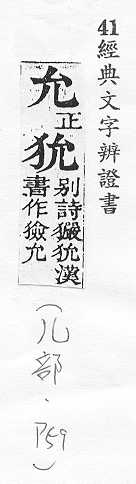 41 經典文字辨證書
允正
狁別詩玁狁漢
書作獫允
（儿部．P59）